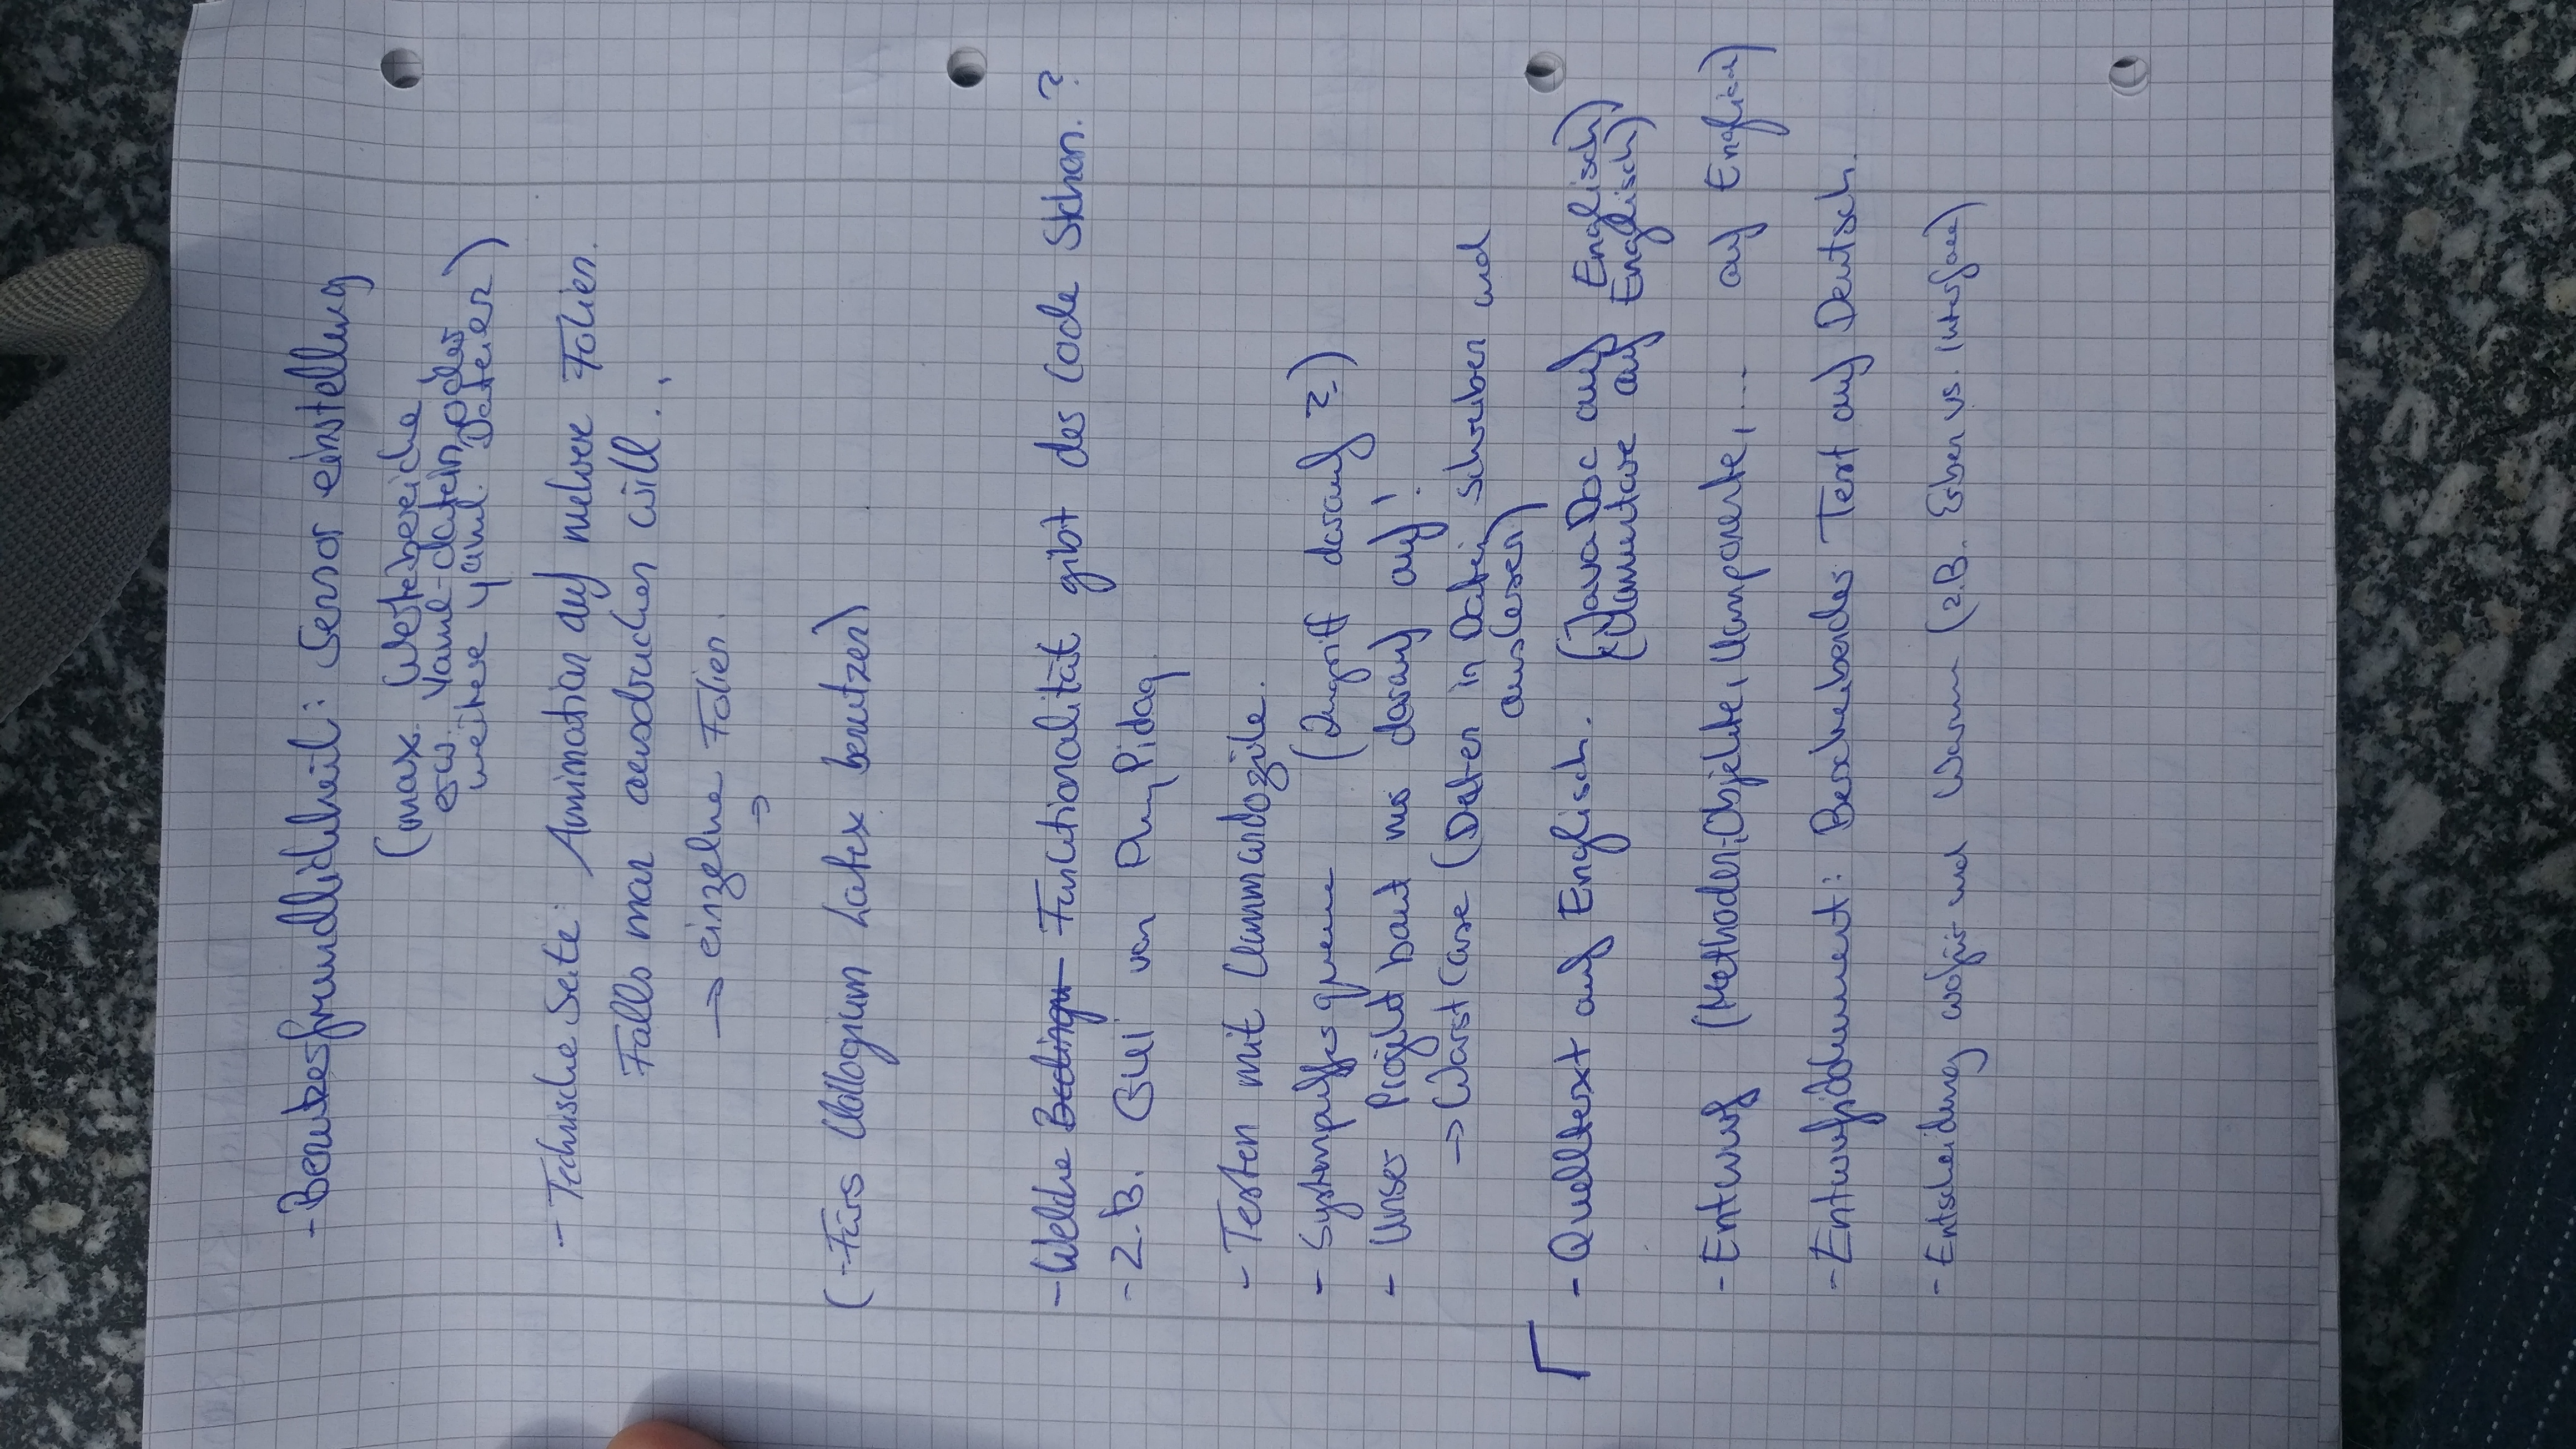 - Benutzerfreundlichkeit: Sensor einstellung
(max. Wertebereiche,
erw. Yaml-datein, oder
weitere yaml. Dateien)
- Technische Seite: Annimation auf mehrere Folien.
Falls man ausdrucken will..
→ einzelne Folien.
→
(- Fürs Kollogium Latex benutzen)
- Welche Bedingu Funktionalität gibt der Code Schon.?
- Z.B. GUI von PhyPidaq
- Testen mit Kommandozile.
- Systempuffer queue (Zugriff darauf?)
- Unser Projekt baut nur darauf auf!
→ Worst Case (Daten in Datei schreiben und
auslesen)
- Quelltext auf Englisch. (JavaDoc auf Englisch)
(Komentare auf Englisch)
- Entwurf (Methoden, Objekte, Komponente, ... auf Englisch)
- Entwurfsdokument: Beschreibender Text auf Deutsch.
- Entscheidung wofür und Warum (z.B. Erben vs. Interface)